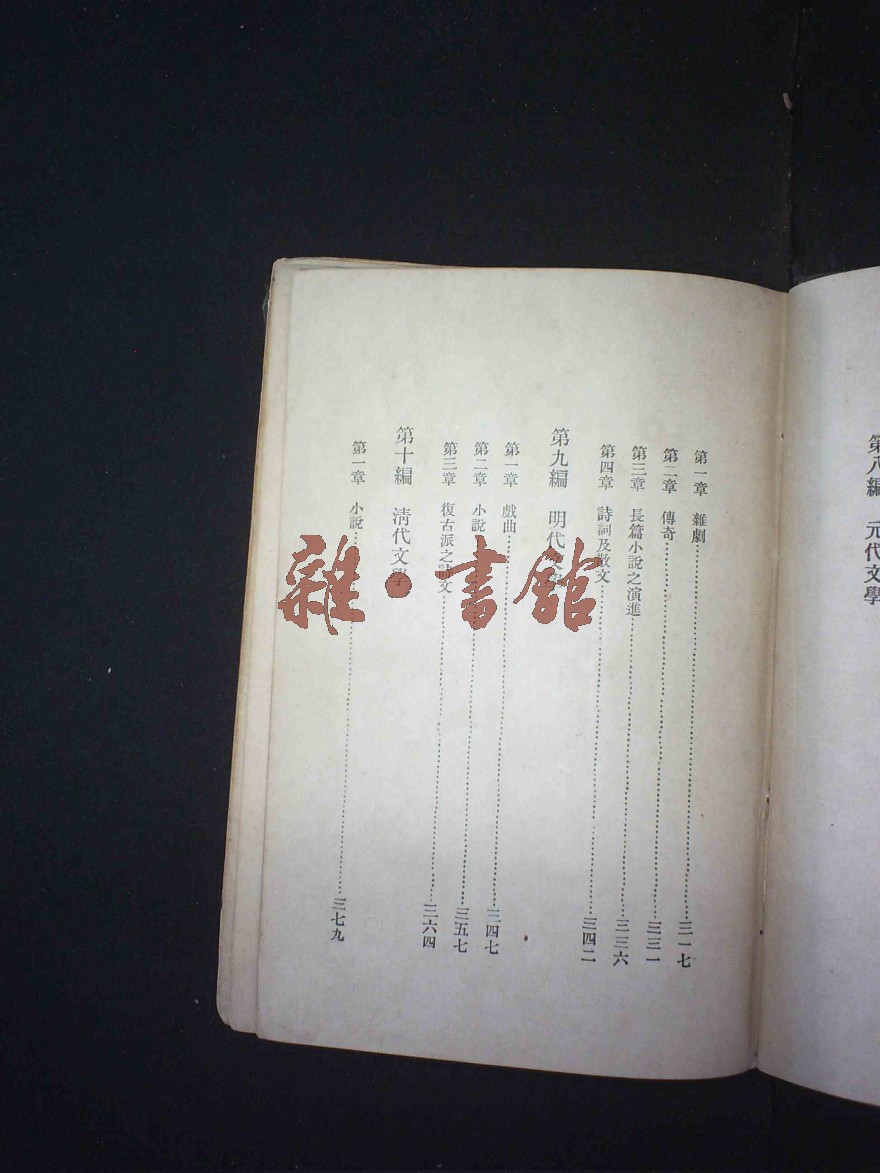 第八編 元代文學
第一章 雜劇……三一七
第二章 傳奇……三三一
第三章 長篇小說之演進……三三六
第四章 詩詞及散文……三四二
第九編 明代文學
第一章 戲曲……三四七
第二章 小說……三五七
第三章 復古派之詩文……三六四
第十編 清代文學
第一章 小說……三七九
雜·書館